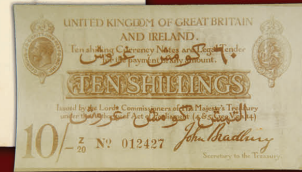 UNITED KINGDOM OF GREAT BRITAIN
AND IRELAND.
Ten shilling Currency Notes are Legal Tender
payment of any amount.
TEN SHILLINGS
Issued by the Lords Commissioners of His Majesty's Treasury
under the Act of Parliament (4 & 5
10/- Z/20 Nº 012427
John Bradbury
Secretary to the Treasury